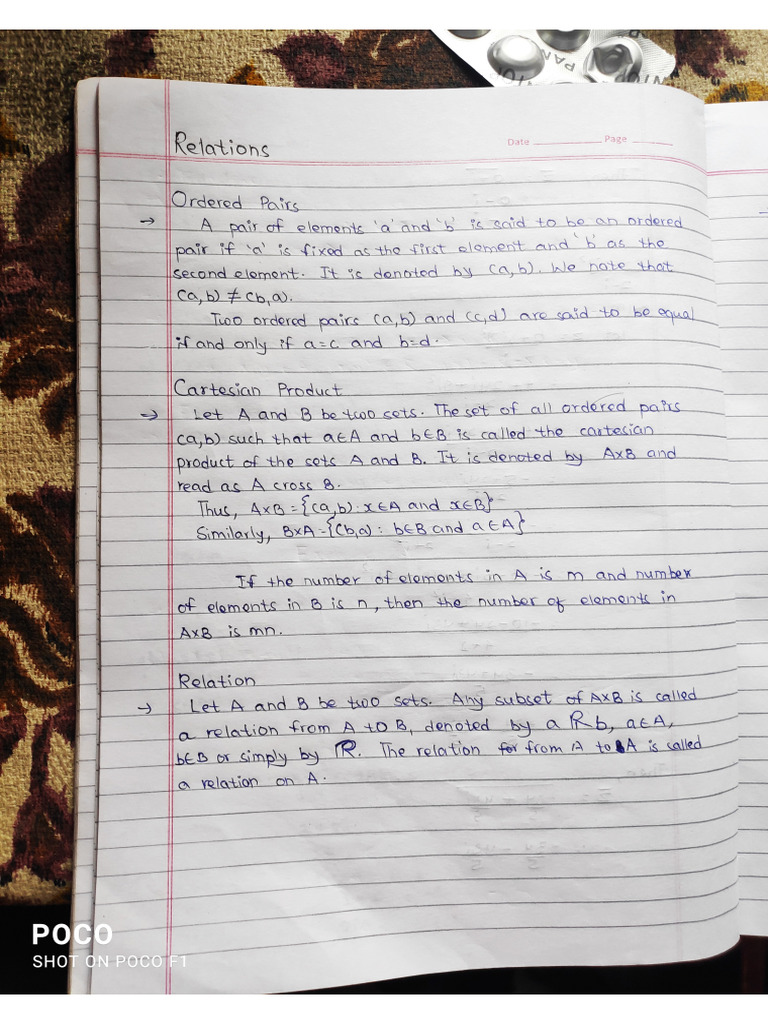 PAN
Relations
Date
Page
Ordered Pairs
→ A pair of elements 'a' and 'b' is said to be an ordered
pair if 'a' is fixed as the first element and 'b' as the
second element. It is denoted by (a,b). We note that
(a,b) ≠ (b,a).
Two ordered pairs (a,b) and (c,d) are said to be equal
if and only if a=c and b=d.
Cartesian Product
→ Let A and B be two sets. The set of all ordered pairs
(a,b) such that a∈A and b∈B is called the cartesian
product of the sets A and B. It is denoted by A×B and
read as A cross B.
Thus, A×B = {(a,b): x∈A and x∈B}
Similarly, B×A = {(b,a): b∈B and a∈A}
If the number of elements in A is m and number
of elements in B is n, then the number of elements in
A×B is mn.
Relation
→ Let A and B be two sets. Any subset of A×B is called
a relation from A to B, denoted by a R b, a∈A,
b∈B or simply by R. The relation from A to A is called
a relation on A.
POCO
SHOT ON POCO F1